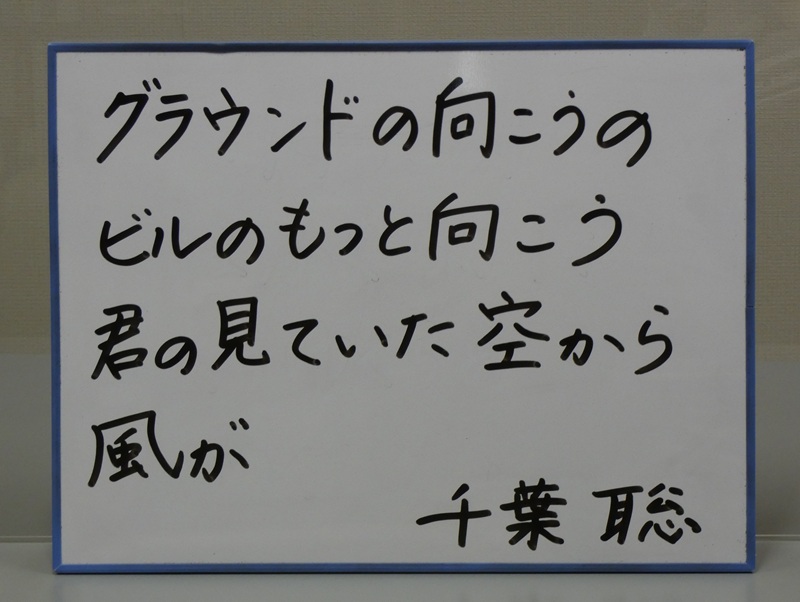 グラウンドの向こうの
ビルのもっと向こう
君の見ていた空から
風が
千葉 聡